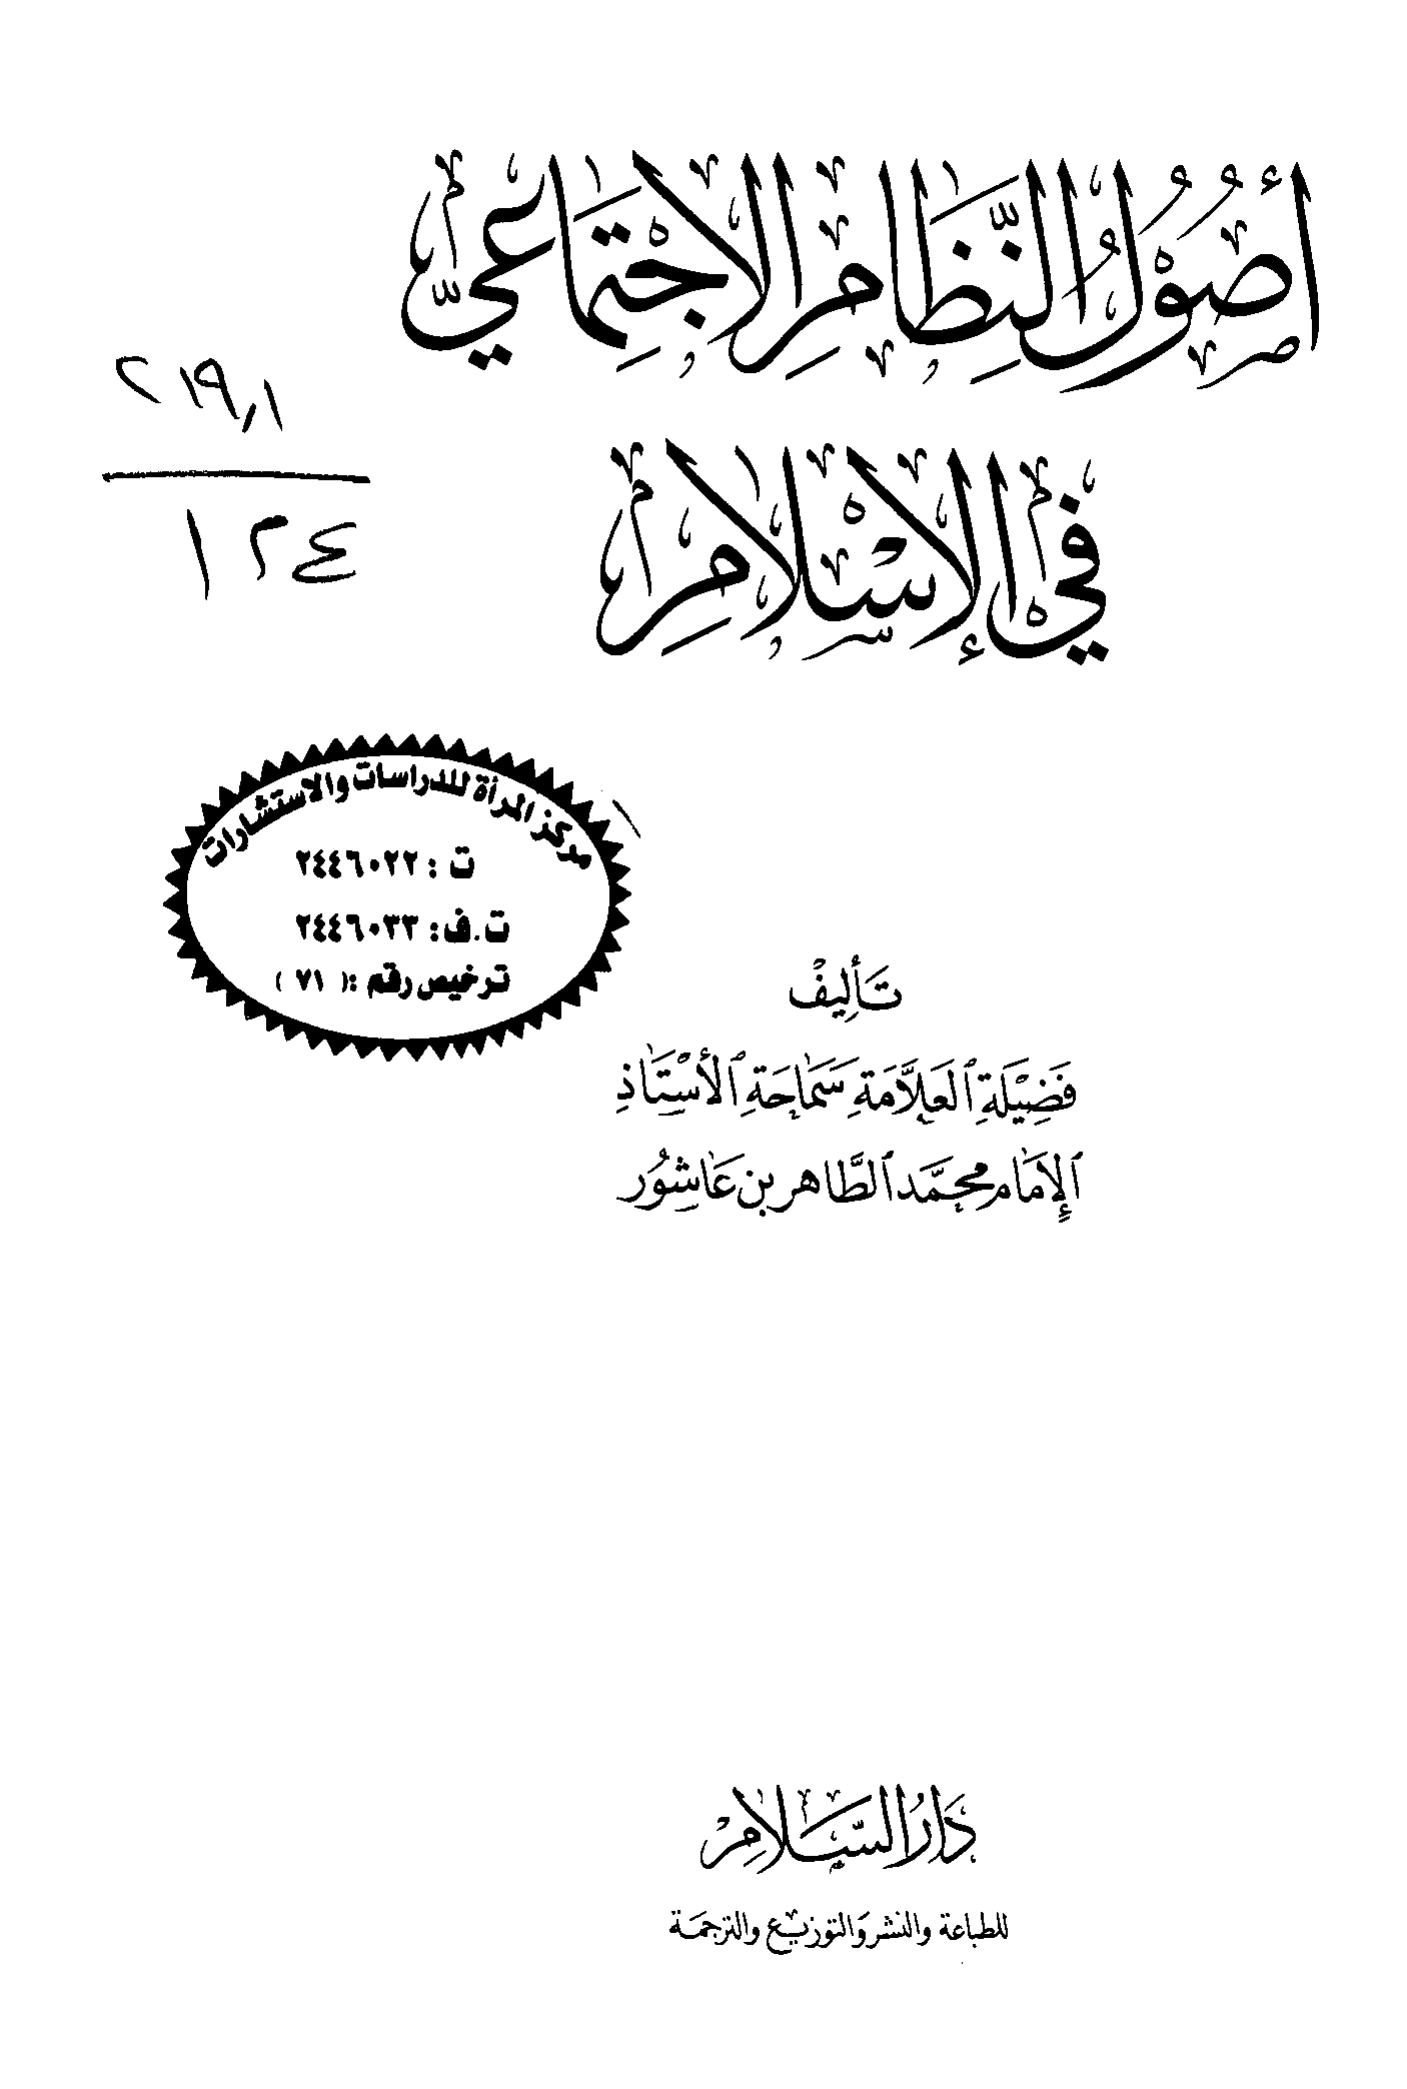 أُصُوْلُ النِّظَامِ الاجْتِمَاعيِّ
في الإسْلامِ
٢١٩,١
١٣٤
مركز المرأة للدراسات والاستشارات
ت : ٢٤٤٦٠٢٢
ت.ف: ٢٤٤٦٠٣٣
ترخيص رقم :( ٧١ )
تَأليفْ
فَضِيْلَةِ ٱلعَلاَّمَةِ سَمَاحَةِ ٱلأسْتَاذِ
ٱلإِمَام محمَّد ٱلطَّاهر بن عَاشُور
دَارُ السَّلامِ
للطباعة والنشر والتوزيع والترجمة